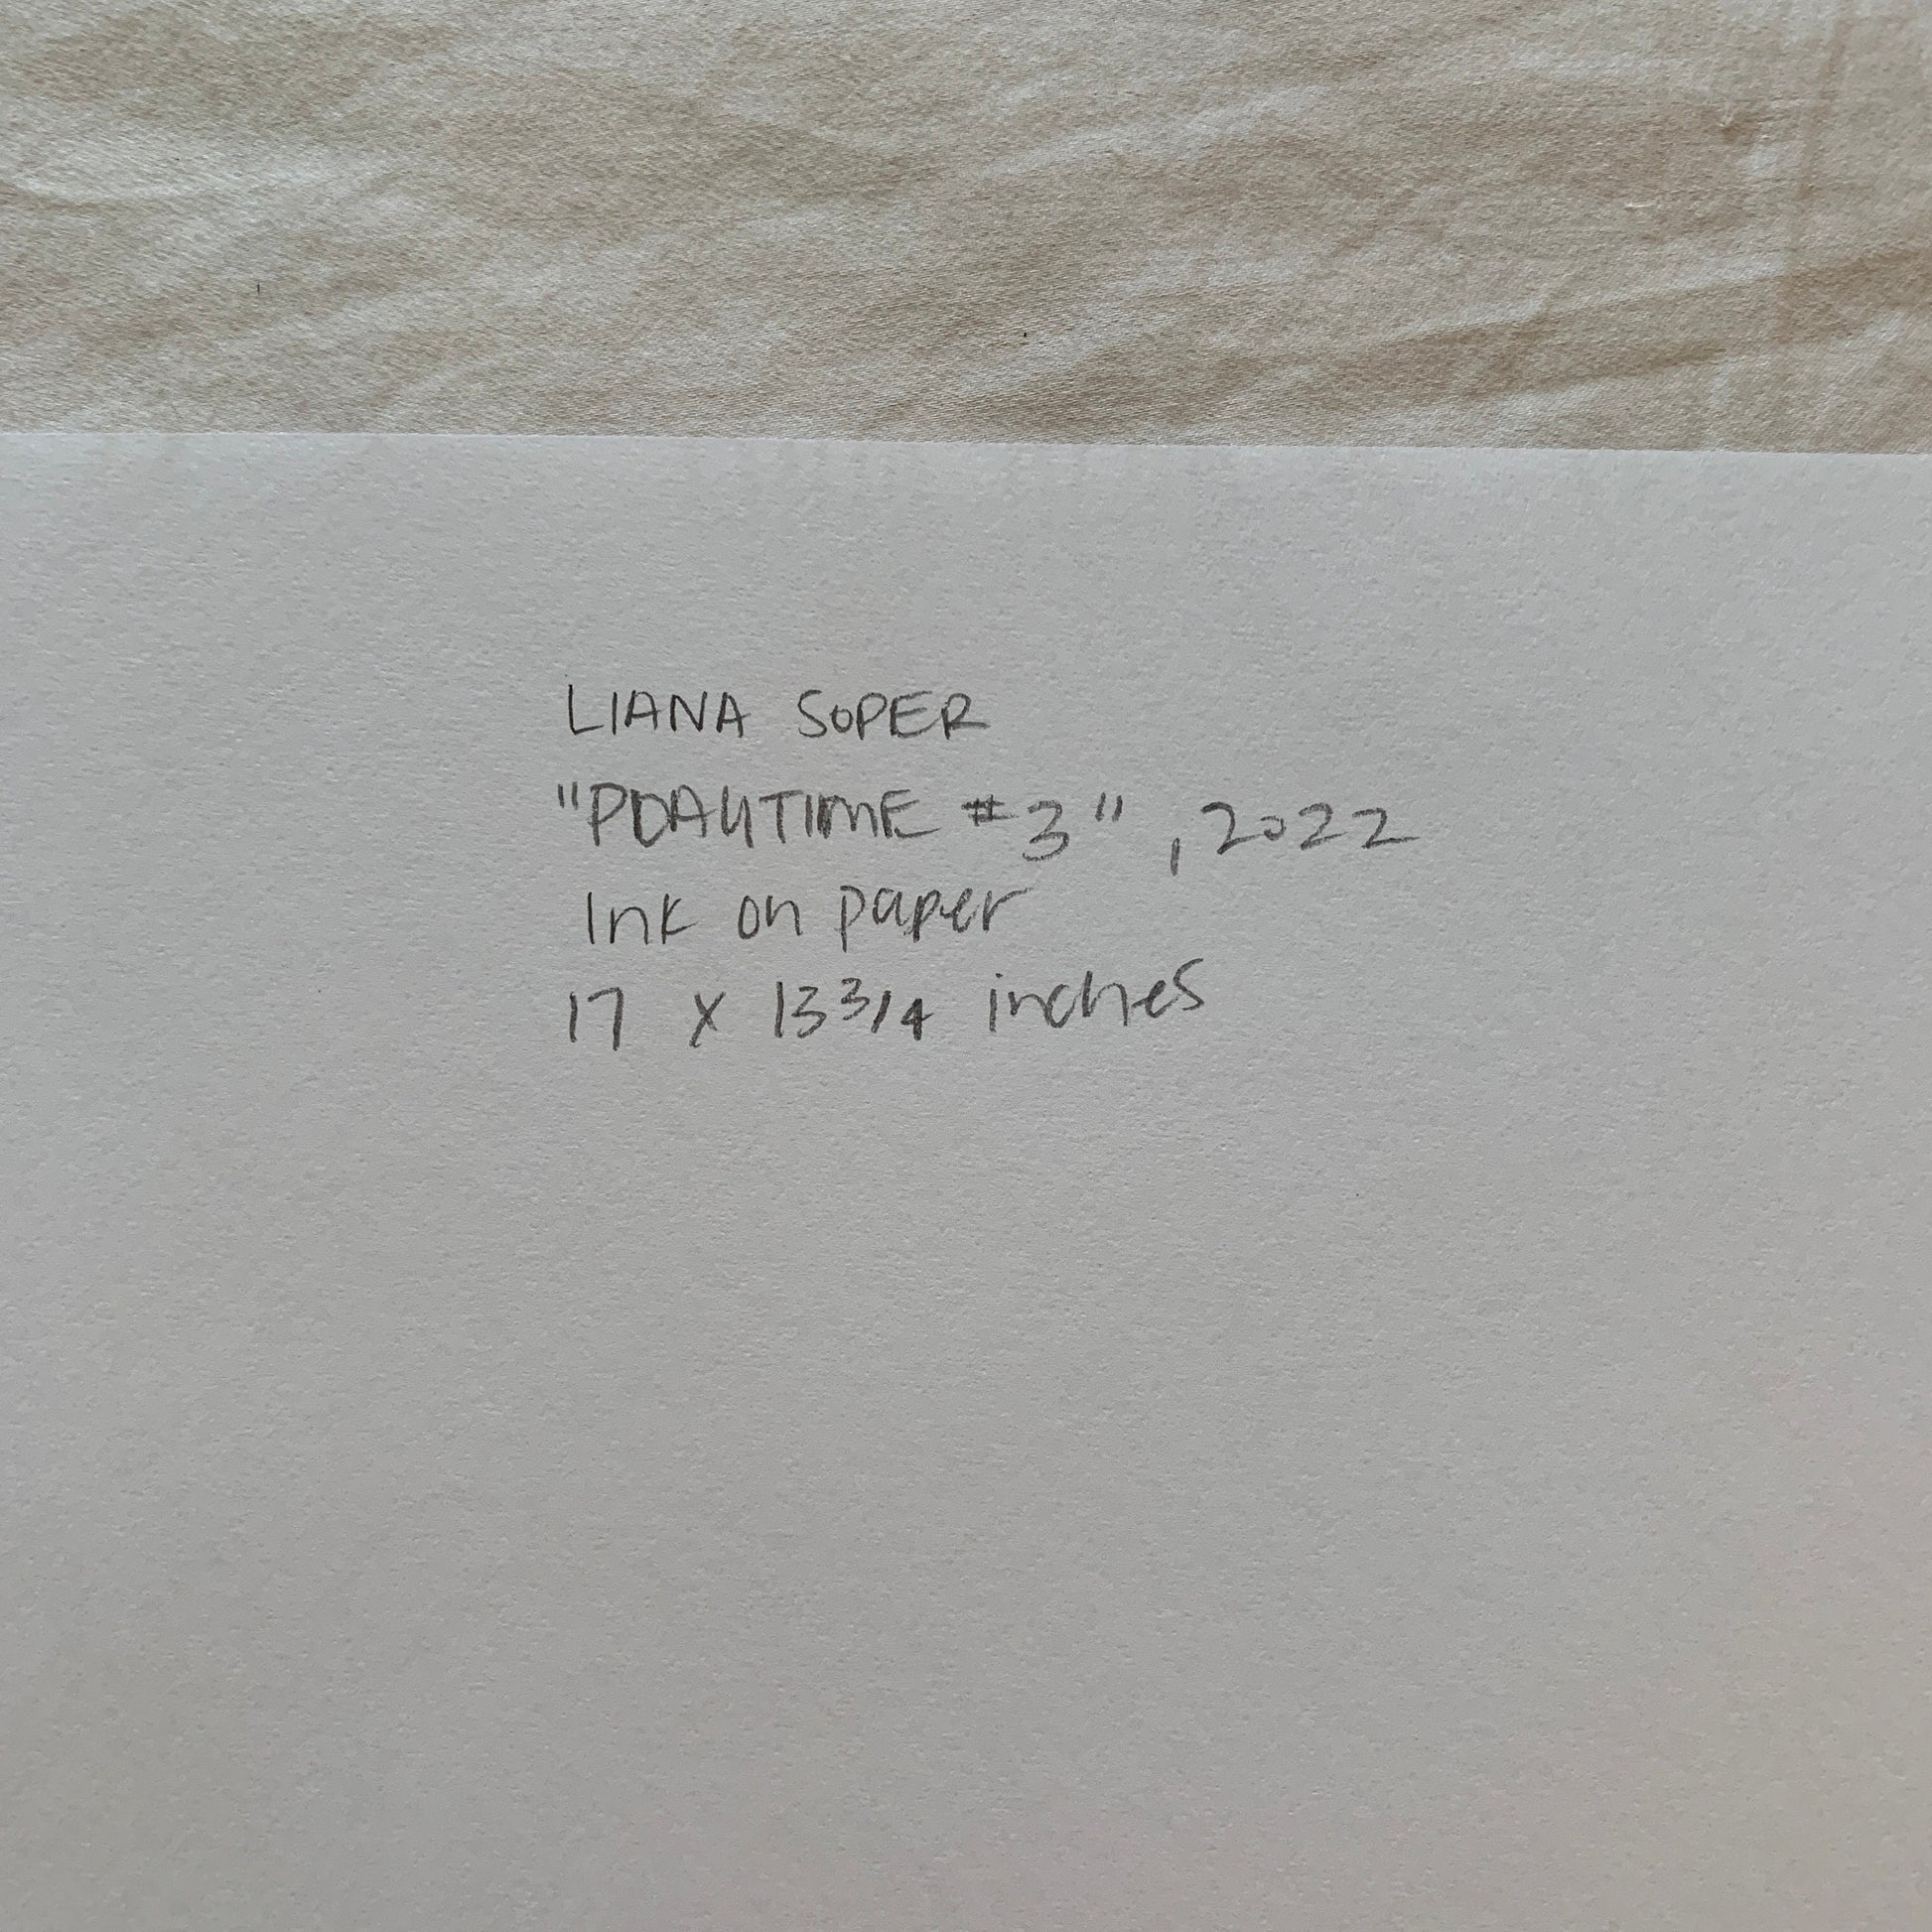 LIANA SOPER
"PDAYTIME #3", 2022
Ink on paper
17 x 13 3/4 inches